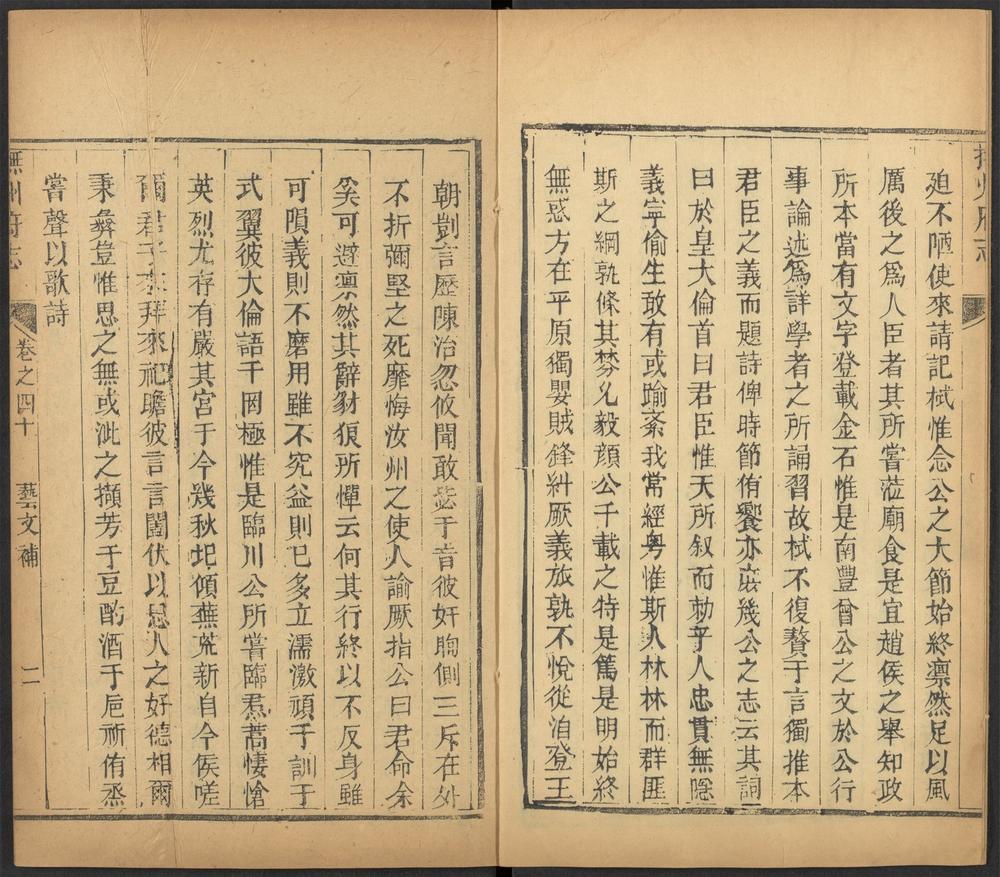 廹不陋使來請記栻惟念公之大節始終凛然足以風
厲後之爲人臣者其所嘗蒞廟食是宜趙侯之舉知政
所本當有文字登載金石惟是南豐曾公之文於公行
事論述爲詳學者之所誦習故栻不復贅于言獨推本
君臣之義而題詩俾時節侑饗亦庶幾公之志云其詞
曰於皇大倫首曰君臣惟天所叙而勑乎人忠貫無隱
義寜偷生敢有或踰紊我常經粤惟斯人林林而群匪
斯之綱孰條其棼允毅顔公千載之特是篤是明始終
無惑方在平原獨嬰賊鋒糾厥義旅孰不悅從洎登王
朝剴言歴陳治忽攸聞敢㖟于昔彼奸朐側三斥在外
不折彌堅之死靡悔汝州之使人諭厥指公曰君命余
奚可遯凛然其辭豺狼所憚云何其行終以不反身雖
可隕義則不磨用雖不究益則已多立濡激頑于訓于
式翼彼大倫語千罔極惟是臨川公所嘗臨焄蒿悽愴
英烈尤存有嚴其宮于今幾秋圯傾蕪荒新自今侯嗟
爾君子來拜來祀瞻彼言言闔伏以思人之好德相爾
秉彝曷惟思之無或泚之擷芳于豆酌酒于巵祈侑烝
嘗聲以歌詩
撫州府志
卷之四十
藝文補
二